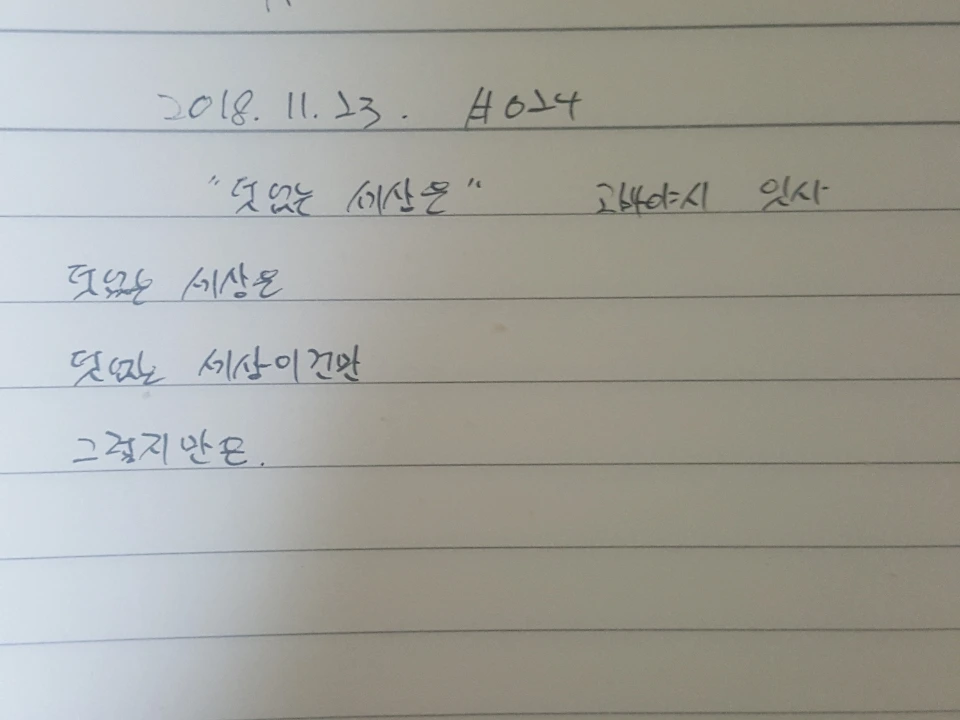 2018. 11. 13. #014
"덧없는 세상은" 고바야시 잇사
덧없는 세상은
덧없는 세상이건만
그렇지만은.